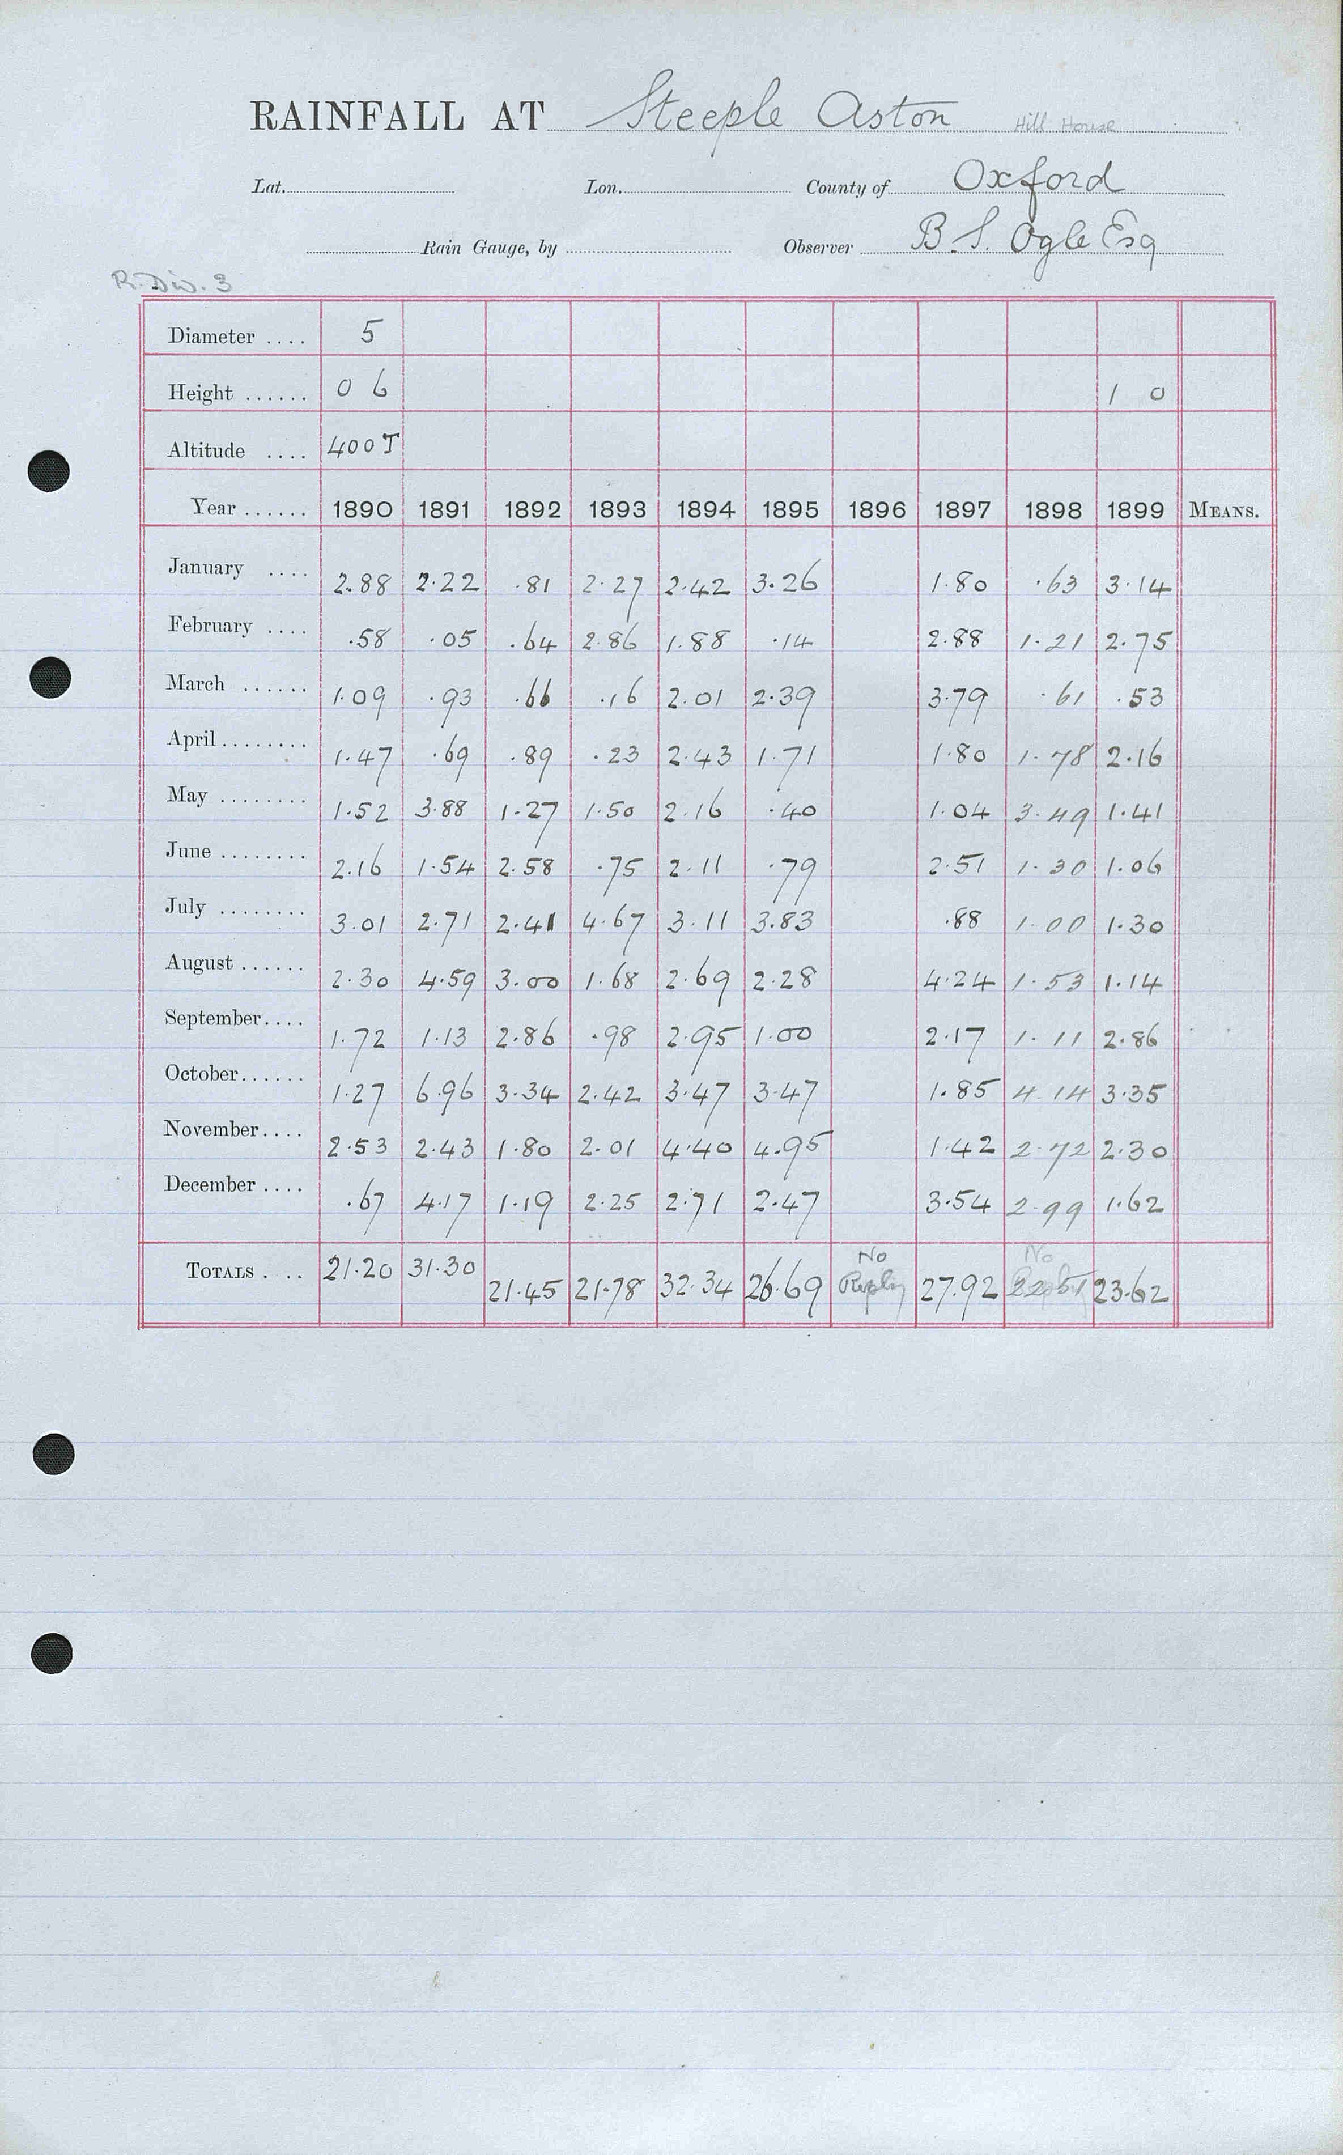 RAINFALL AT Steeple Aston Hill House
Lat. Lon. County of Oxford
Rain Gauge, by Observer B. S. Ogle Esq
R. Div. 3
Diameter .... 5
Height ...... 0 6 1 0
Altitude .... 400 T
Year ...... 1890 1891 1892 1893 1894 1895 1896 1897 1898 1899 MEANS.
January .... 2.88 2.22 .81 2.27 2.42 3.26 1.80 .63 3.14
February .... .58 .05 .64 2.86 1.88 .14 2.88 1.21 2.75
March ...... 1.09 .93 .66 .16 2.01 2.39 3.79 .61 .53
April ........ 1.47 .69 .89 .23 2.43 1.71 1.80 1.78 2.16
May ........ 1.52 3.88 1.27 1.50 2.16 .40 1.04 3.49 1.41
June ........ 2.16 1.54 2.58 .75 2.11 .79 2.51 1.30 1.06
July ........ 3.01 2.71 2.41 4.67 3.11 3.83 .88 1.00 1.30
August ...... 2.30 4.59 3.00 1.68 2.69 2.28 4.24 1.53 1.14
September.... 1.72 1.13 2.86 .98 2.95 1.00 2.17 1.11 2.86
October...... 1.27 6.96 3.34 2.42 3.47 3.47 1.85 4.14 3.35
November.... 2.53 2.43 1.80 2.01 4.40 4.95 1.42 2.72 2.30
December .... .67 4.17 1.19 2.25 2.71 2.47 3.54 2.99 1.62
TOTALS .... 21.20 31.30 21.45 21.78 32.34 26.69 No Reply 27.92 No 22.51 23.62